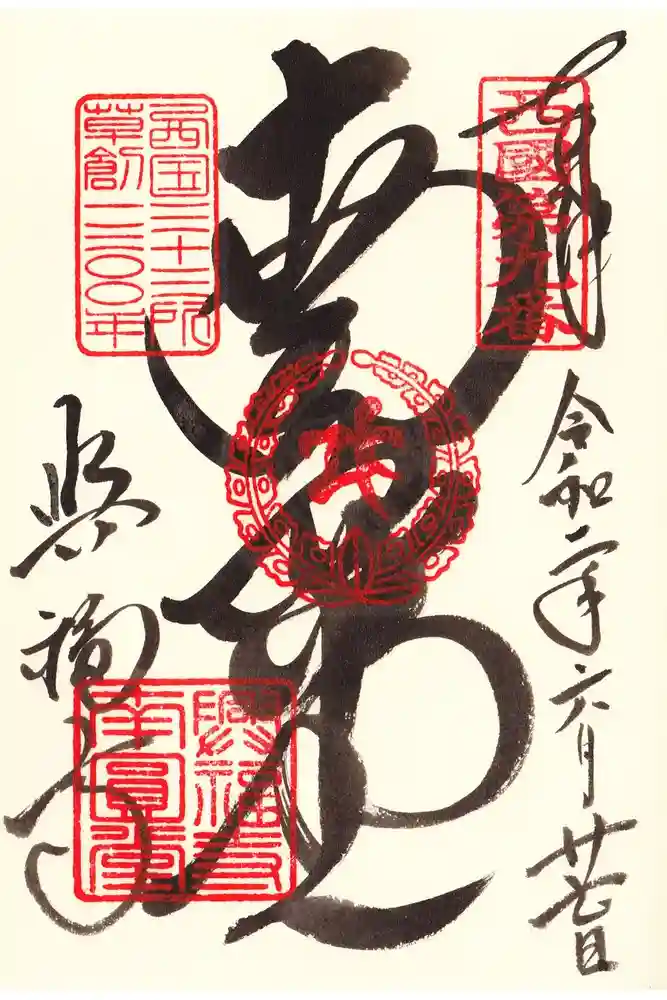 奉拝
西國第九番
令和二年六月廿七日
南円堂
西国三十三所
草創一三〇〇年
興福寺
興福寺
南圓堂